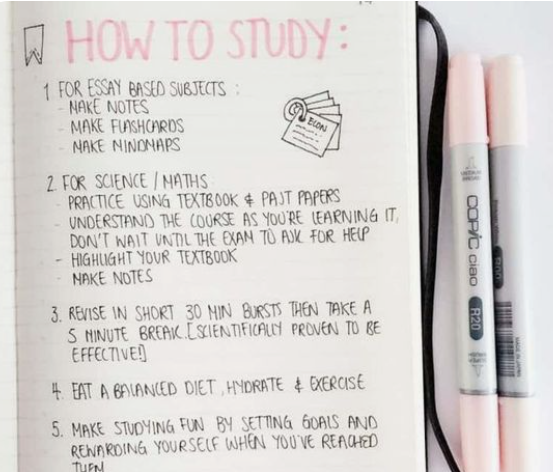 HOW TO STUDY:
1 FOR ESSAY BASED SUBJECTS :
- MAKE NOTES
- MAKE FLASHCARDS
- MAKE MINDMAPS
ECON
2. FOR SCIENCE / MATHS
- PRACTICE USING TEXTBOOK & PAST PAPERS
- UNDERSTAND THE COURSE AS YOU'RE LEARNING IT,
DON'T WAIT UNTIL THE EXAM TO ASK FOR HELP
- HIGHLIGHT YOUR TEXTBOOK
- MAKE NOTES
3. REVISE IN SHORT 30 MIN BURSTS THEN TAKE A
5 MINUTE BREAK.[SCIENTIFICALLY PROVEN TO BE
EFFECTIVE!]
4. EAT A BALANCED DIET, HYDRATE & EXERCISE
5. MAKE STUDYING FUN BY SETTING GOALS AND
REWARDING YOURSELF WHEN YOU'VE REACHED
THEM
COPIC ciao
R20